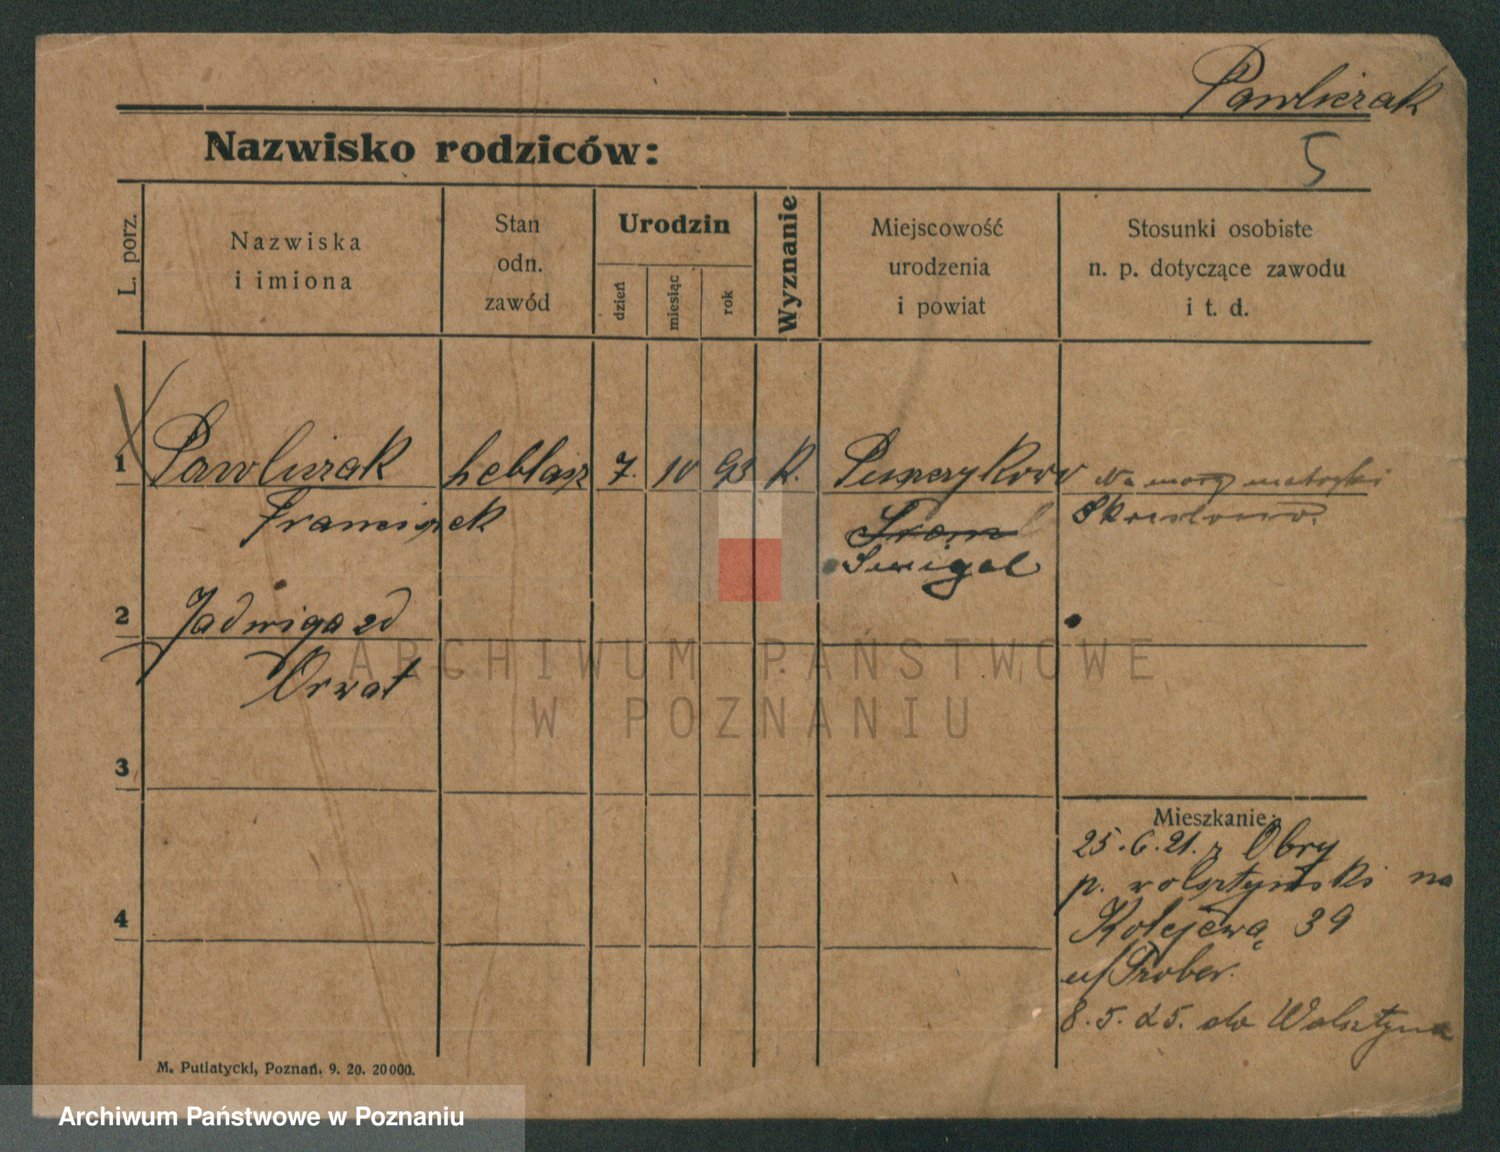 Pawliczak
Nazwisko rodziców:
5
L. porz.
Nazwiska
i imiona
Stan
odn.
zawód
Urodzin
dzień
miesiąc
rok
Wyznanie
Miejscowość
urodzenia
i powiat
Stosunki osobiste
n. p. dotyczące zawodu
i t. d.
1
Pawliczak
Franciszek
7.
10
93
K.
Śmigel
Na mocy metryki
2
Jadwiga zd
Orwat
ARCHIWUM PAŃSTWOWE
W POZNANIU
3
4
Mieszkanie:
25.6.21. z Obry
p. wolsztyński na
Kolejową 39
8.5.25. do Wolsztyna
M. Putiatycki, Poznań. 9. 20. 20000.
Archiwum Państwowe w Poznaniu